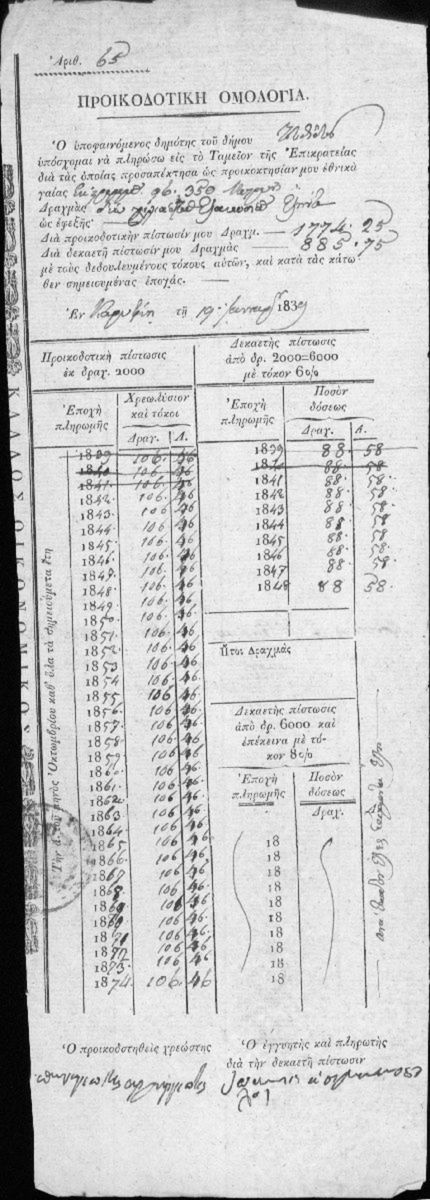 Ἀριθ. 65
ΠΡΟΙΚΟΔΟΤΙΚΗ ΟΜΟΛΟΓΙΑ.
Ὁ ὑποφαινόμενος δημότης τοῦ δήμου
ὑπόσχομαι νὰ πληρώσω εἰς τὸ Ταμεῖον τῆς Ἐπικρατείας
διὰ τὰς ὁποίας προσαπέκτησα ὡς προικοκτησίαν μου ἐθνικὰ
γαίας 96. 350
Δραχμὰς
ὡς ἐφεξῆς
Διὰ προικοδοτικὴν πίστωσίν μου Δραχμ. — 1774. 25
Διὰ δεκαετῆ πίστωσίν μου Δραχμὰς — 885. 75
μὲ τοὺς δεδουλευμένους τόκους αὐτῶν, καὶ κατὰ τὰς κάτω
θεν σημειουμένας ἐποχάς. —
Ἐν τῇ 19 1839
Προικοδοτικὴ πίστωσις
ἐκ δραχ. 2000
Ἐποχὴ πληρωμῆς
Χρεωλύσιον καὶ τόκοι
Δραχ. Λ.
1839 106. 46
1840 106. 46
1841 106. 46
1842 106. 46
1843 106. 46
1844 106. 46
1845 106. 46
1846 106. 46
1849 106. 46
1848 106. 46
1849 106. 46
1850 106. 46
1851 106. 46
1852 106. 46
1853 106. 46
1854 106. 46
1855 106 46
1856 106 46
1857 106 46
1858 106 46
1859 106 46
1860 106. 46
1861 106. 46
1862 106. 46
1863 106. 46
1864 106. 46
1865 106. 46
1866 106. 46
1867 106. 46
1868 106. 46
1869 106. 46
1870 106. 46
1871 106. 46
1872 106. 46
1873 106 46
1874 106. 46
Δεκαετὴς πίστωσις
ἀπὸ δρ. 2000=6000
μὲ τόκον 6 0/0
Ἐποχὴ πληρωμῆς
Ποσὸν δόσεως
Δραχ. Λ.
1839 88. 58
1840 88. 58
1841 88. 58
1842 88. 58
1843 88. 58
1844 88. 58
1845 88. 58
1846 88. 58
1847 88. 58
1848 88 58.
Ἤτοι Δραχμὰς
Δεκαετὴς πίστωσις
ἀπὸ δρ. 6000 καὶ
ἐπέκεινα μὲ τό-
κον 8 0/0
Ἐποχὴ πληρωμῆς
Ποσὸν δόσεως
Δραχ.
18
18
18
18
18
18
18
18
18
18
Τὴν Α. τοῦ μηνὸς Ὀκτωμβρίου καθ' ὅλα τὰ σημειούμετα ἔτη
ΚΛΑΔΟΣ ΟΙΚΟΝΟΜΙΚΟΥ
Ὁ προικοδοτηθεὶς χρεώστης
Ὁ ἐγγυητὴς καὶ πληρωτὴς
διὰ τὴν δεκαετῆ πίστωσιν